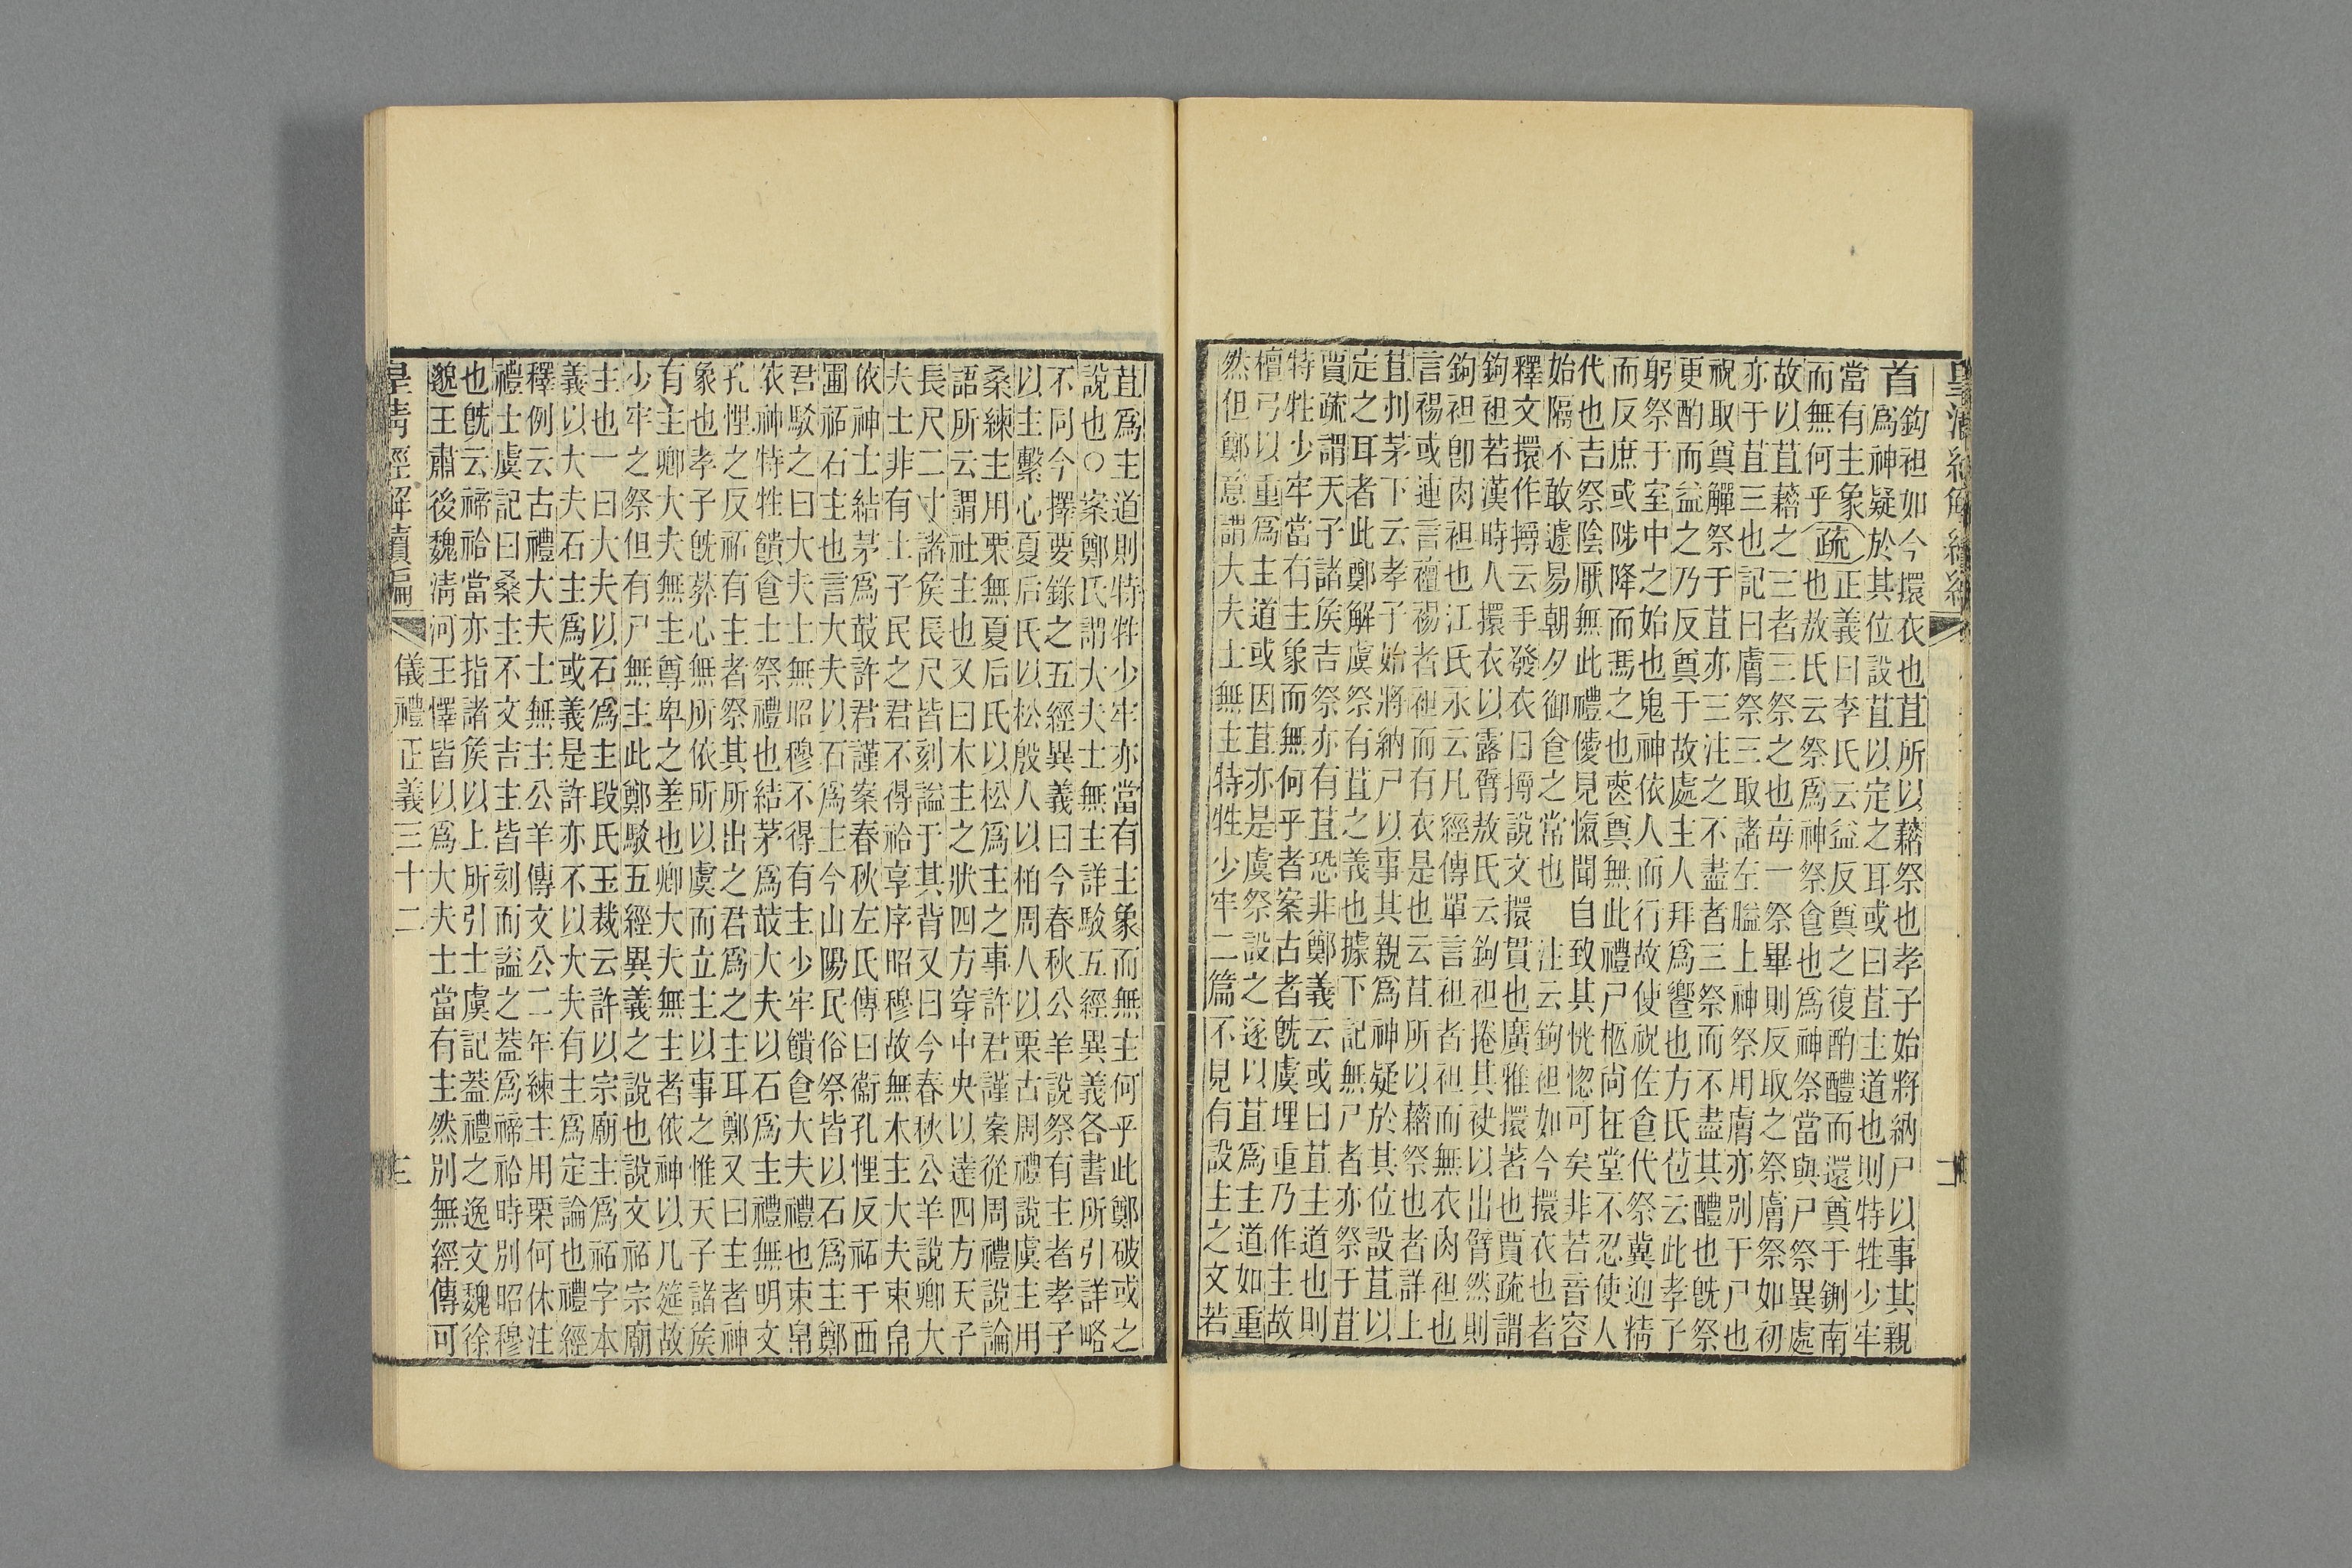 皇清經解續編
二
首
鉤袒如今擐衣也苴所以藉祭也孝子始將納尸以事其親
爲神疑於其位設苴以定之耳或曰苴主道也則特牲少牢
當有主象
而無何乎
疏
正義曰李氏云益反奠之復酌醴而還奠于鉶南
也敖氏云祭爲神祭食也爲神祭當與尸祭異處
故以苴藉之三者三祭之也每一祭畢則反取之祭膚祭如初
亦于苴三也記曰膚祭三取諸左膉上神祭用膚亦別于尸也
祝取奠觶祭于苴亦三注之不盡者三祭而不盡其醴也旣祭
更酌而益之乃反奠于故處主人拜爲饗也方氏苞云此孝子
躬祭于室中之始也鬼神依人而行故使祝佐食代祭冀迎精
而反庶或陟降而馮之也薆奠無此禮尸柩尚在堂不忍使人
代也吉祭陰厭無此禮僾見愾聞自致其恍惚可矣非若音容
始隔不敢遽易朝夕御食之常也 注云鉤袒如今擐衣也者
釋文擐作撏云手發衣曰撏說文擐貫也廣雅擐著也賈疏謂
鉤袒若漢時人擐衣以露臂敖氏云鉤袒捲其袂以出臂然則
鉤袒卽肉袒也江氏永云凡經傳單言袒者袒而無衣肉袒也
言裼或連言襢裼者袒而有衣是也云苴所以藉祭也者詳上
苴刌茅下云孝子始將納尸以事其親爲神疑於其位設苴以
定之耳者此鄭解虞祭有苴之義也據下記無尸者亦祭于苴
賈疏謂天子諸矦吉祭亦有苴恐非鄭義云或曰苴主道也則
特牲少牢當有主象而無何乎者案古者旣虞埋重乃作主故
檀弓以重爲主道或因苴亦是虞祭設之遂以苴爲主道如重
然但鄭意謂大夫士無主特牲少牢二篇不見有設主之文若
苴爲主道則特牲少牢亦當有主象而無主何乎此鄭破或之
說也○案鄭氏謂大夫士無主詳駁五經異義各書所引詳略
不同今擇要錄之五經異義曰今春秋公羊說祭有主者孝子
以主繫心夏后氏以松殷人以柏周人以栗古周禮說虞主用
桑練主用栗無夏后氏以松爲主之事許君謹案從周禮說論
語所云謂社主也又曰木主之狀四方穿中央以達四方天子
長尺二寸諸矦長尺皆刻謚于其背又曰今春秋公羊說卿大
夫士非有土子民之君不得祫享序昭穆故無木主大夫束帛
依神士結茅爲菆許君謹案春秋左氏傳曰衞孔悝反祏于西
圃祏石主也言大夫以石爲主今山陽民俗祭皆以石爲主鄭
君駁之曰大夫士無昭穆不得有主少牢饋食大夫禮也束帛
依神特牲饋食士祭禮也結茅爲菆大夫以石爲主禮無明文
孔悝之反祏有主者祭其所出之君爲之主耳鄭又曰主者神
象也孝子旣葬心無所依所以虞而立主以事之惟天子諸矦
有主卿大夫無主尊卑之差也卿大夫無主者依神以几筵故
少牢之祭但有尸無主此鄭駁五經異義之說也說文祏宗廟
主也一曰大夫以石爲主段氏玉裁云許以宗廟主爲祏字本
義以大夫石主爲或義是許亦不以大夫有主爲定論也禮經
釋例云古禮大夫士無主公羊傳文公二年練主用栗何休注
禮士虞記曰桑主不文吉主皆刻而謚之蓋爲禘祫時別昭穆
也旣云禘祫當亦指諸矦以上所引士虞記蓋禮之逸文魏徐
邈王肅後魏淸河王懌皆以爲大夫士當有主然別無經傳可
皇清經解續編
儀禮正義三十二
三